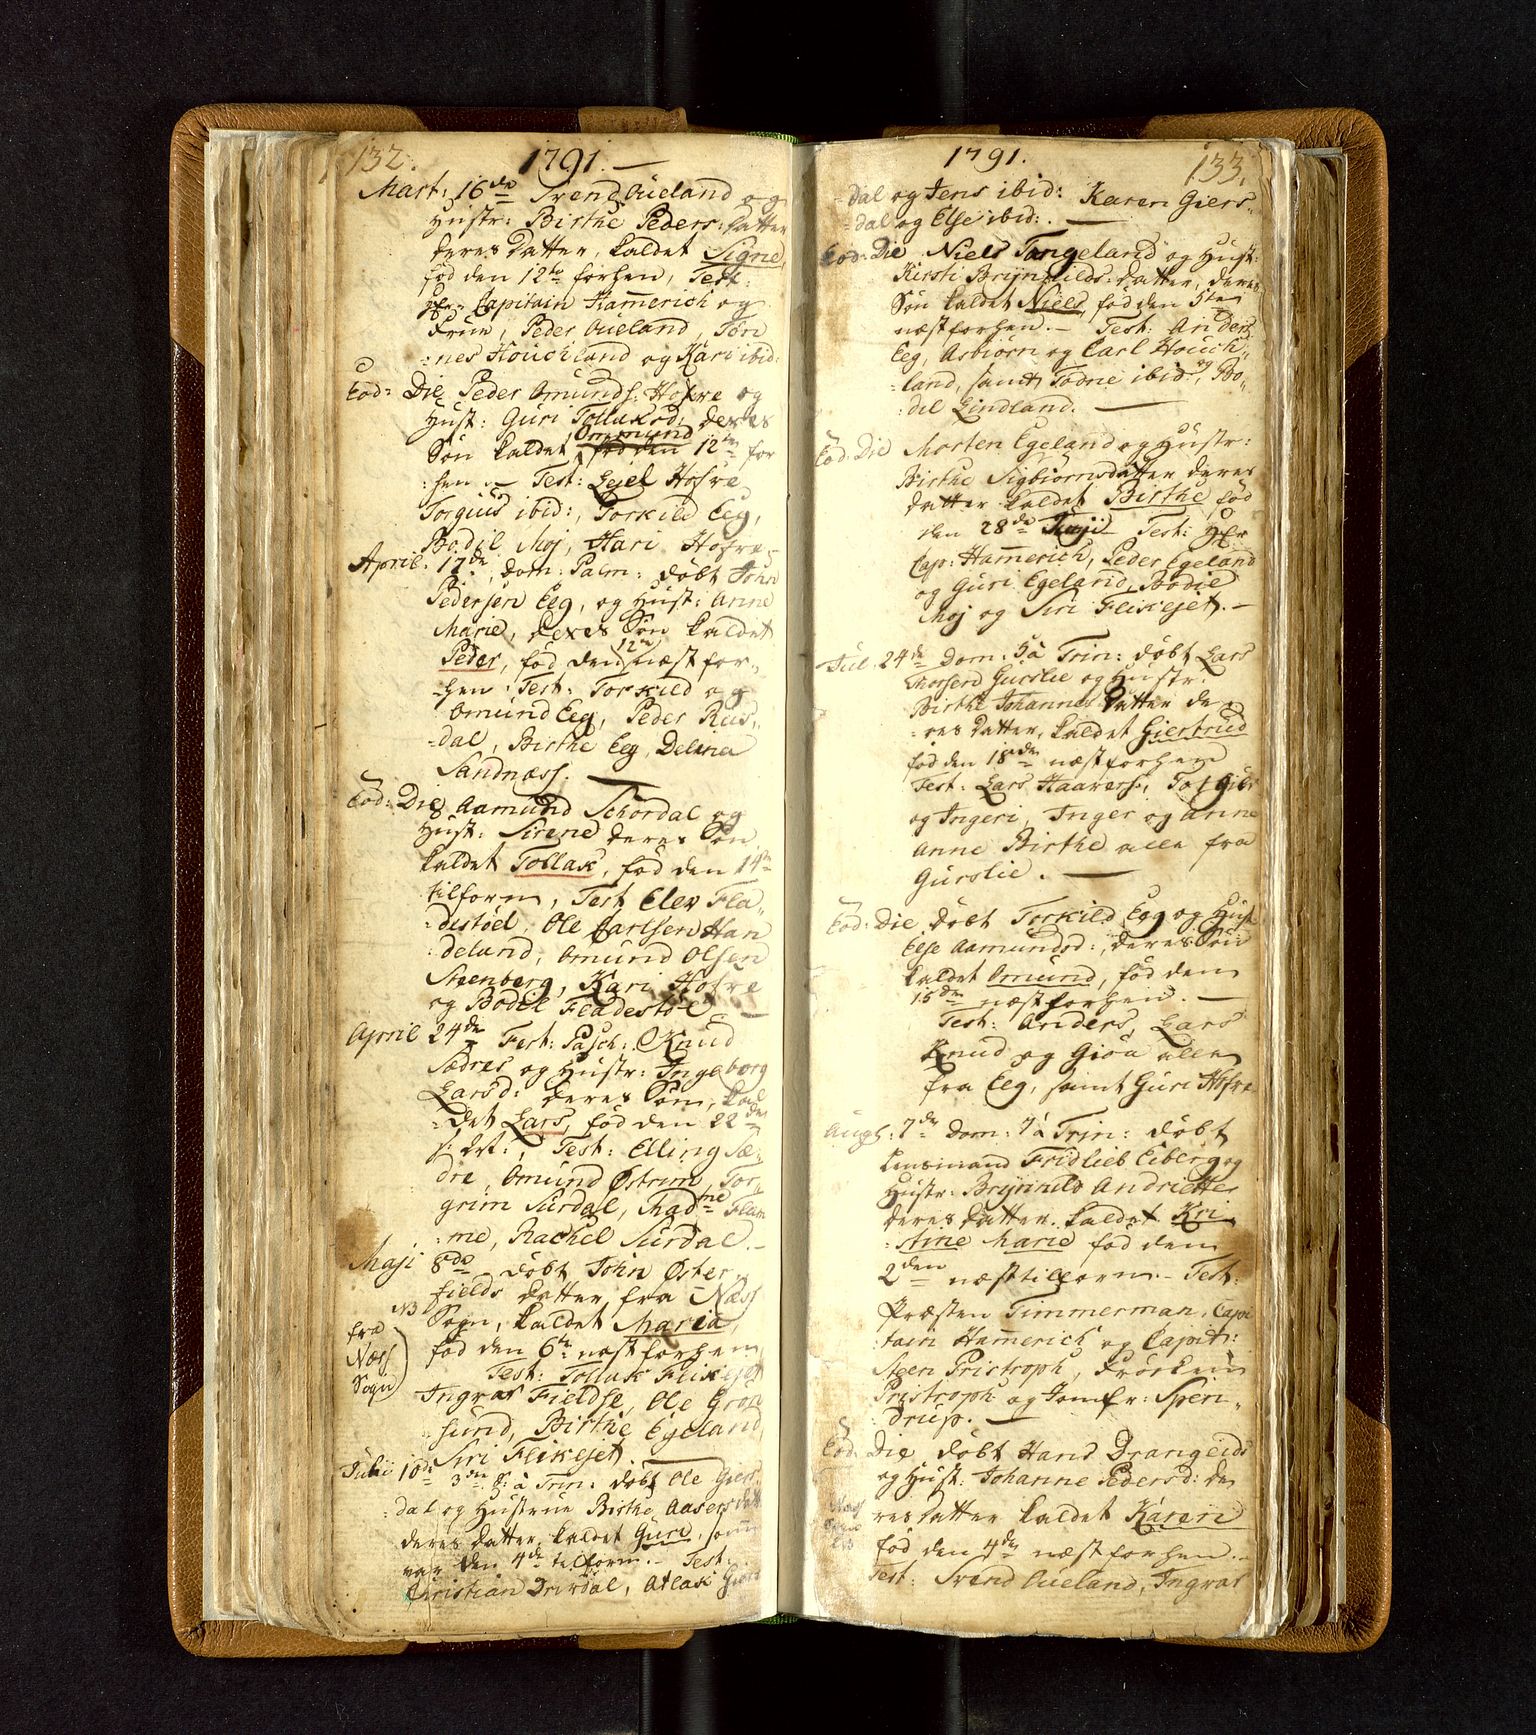 132.
1791. —
Mart: 16de Svend Aueland og
Hustr: Birthe Peders: datter
deres datter, kaldet Signe,
fød den 12te forhen, Test:
Hr. Capitain Hamerich og
Frue, Peder Aueland, Tøn
=nes Houchland og Kari ibid:
Eod: Die Peder Omunds: Hofre og
Hust: Guri Tollaksd: deres
Søn kaldet Ommund fød den 12te for
:hen — Test: Lejel Hofre
Torgius ibid:, Torkild Eeg,
Bodil Moj, Kari Hofre.
April: 17de, Dom: Palm: døbt John
Pedersen Eeg, og Hust: Anne
Marie, deres Søn kaldet
Peder, fød den 12te næst for=
=hen. Test: Torkild og
Omund Eeg, Peder Rus=
=dal, Birthe Eeg, Delina
Sandnæss. —
Eod: Die Aamund Schordal og
Hust: Sirene deres Søn
kaldet Tollak, fød den 14de
tilforn, Test Elev Fla=
=destøel, Ole Carlsen Han
deland, Omund Olsen
Steenberg, Kari Hofre
og Bodil Fladestøl —
April 24de Fest: Pasch: Knud
Sædres og Hustr: Ingeborg
Larsd: deres Søn, kal
=det Lars, fød den 22de
Test: Elling Sæ=
dre, Omund Østrem, Tor=
grim Surdal, Madme Flam
:me, Rachel Surdal. —
Maji 8de døbt John Øster
fields datter fra Næss
NB Sogn, kaldet Maria,
fra
Næss
Sogn
fød den 6te næst forhen
Test: Tollak Flikejet
Ingvar Fieldse, Ole Grøn
sund, Birthe Egeland,
Siri Flikejet. —
Julii 10de
3die S: a Trin: døbt Ole Giers
dal og Hustrue Birthe Aasers datt
deres datter, kaldet Guri, som
var den 4de tilforn. — Test:
Christian Drivdal, Atlak Giers
1791.
133.
=dal og Jens ibid: Karen Giers=
=dal og Else ibid:. —
Eod: Die Niels Tangeland og Hust:
Kirsti Brynhilds: datter, deres
Søn kaldet Niels, fød den 5te
næst forhen. — Test: Anders
Eeg, Asbiørn og Carl Houch=
=land, samt Todne ibid: og Bo=
:del Lindland. —
Eod: Die Morten Egeland og Hustr:
Birthe Sigbiørnsdatter deres
datter kaldet Birthe, fød
den 28de Junji Test: Hr
Cap: Hamerich, Peder Egeland
og Guri Egeland, Bodil
Moj og Siri Flikejet. —
Jul: 24de Dom: 5 à Trin: døbt Lars
Thorsend Gurslie og Hustr:
Birthe Johannes datter de=
=res datter, kaldet Giertrud
fød den 18de næst forhen
Test: Lars Haavers:, Torgius
og Ingeri, Inger og Anne
Anne Birthe alle fra
Gurslie. —
Eod: Die, døbt Torkild Egg og Hust
Else Aamundsd:, deres Søn
kaldet Omund, fød den
15de næst forhen. —
Test: Anders, Lars
Knud og Gioa alle
fra Eeg, samt Guri Hofre
Augs: 7de Dom: 7 à Trin: døbt
Lensmand Fridlieb Eiberg og
Hustr: Brynhild Andriette
deres datter kaldet Kri
:stine Marie fød den
2den næst tilforn — Test:
Præsten Timmerman, Capi
:tain Hamerich og Capit:
Steen Pristroph, Frøcken
Pristroph og Jomfr: Spen=
:drup. —
Eod: Die døbt Hans Drangeids
og Hust: Johanne Pedersd: de
Næss
res datter kaldet Karen
fød den 4de næst forhen. —
Test: Svend Aueland, Ingvar